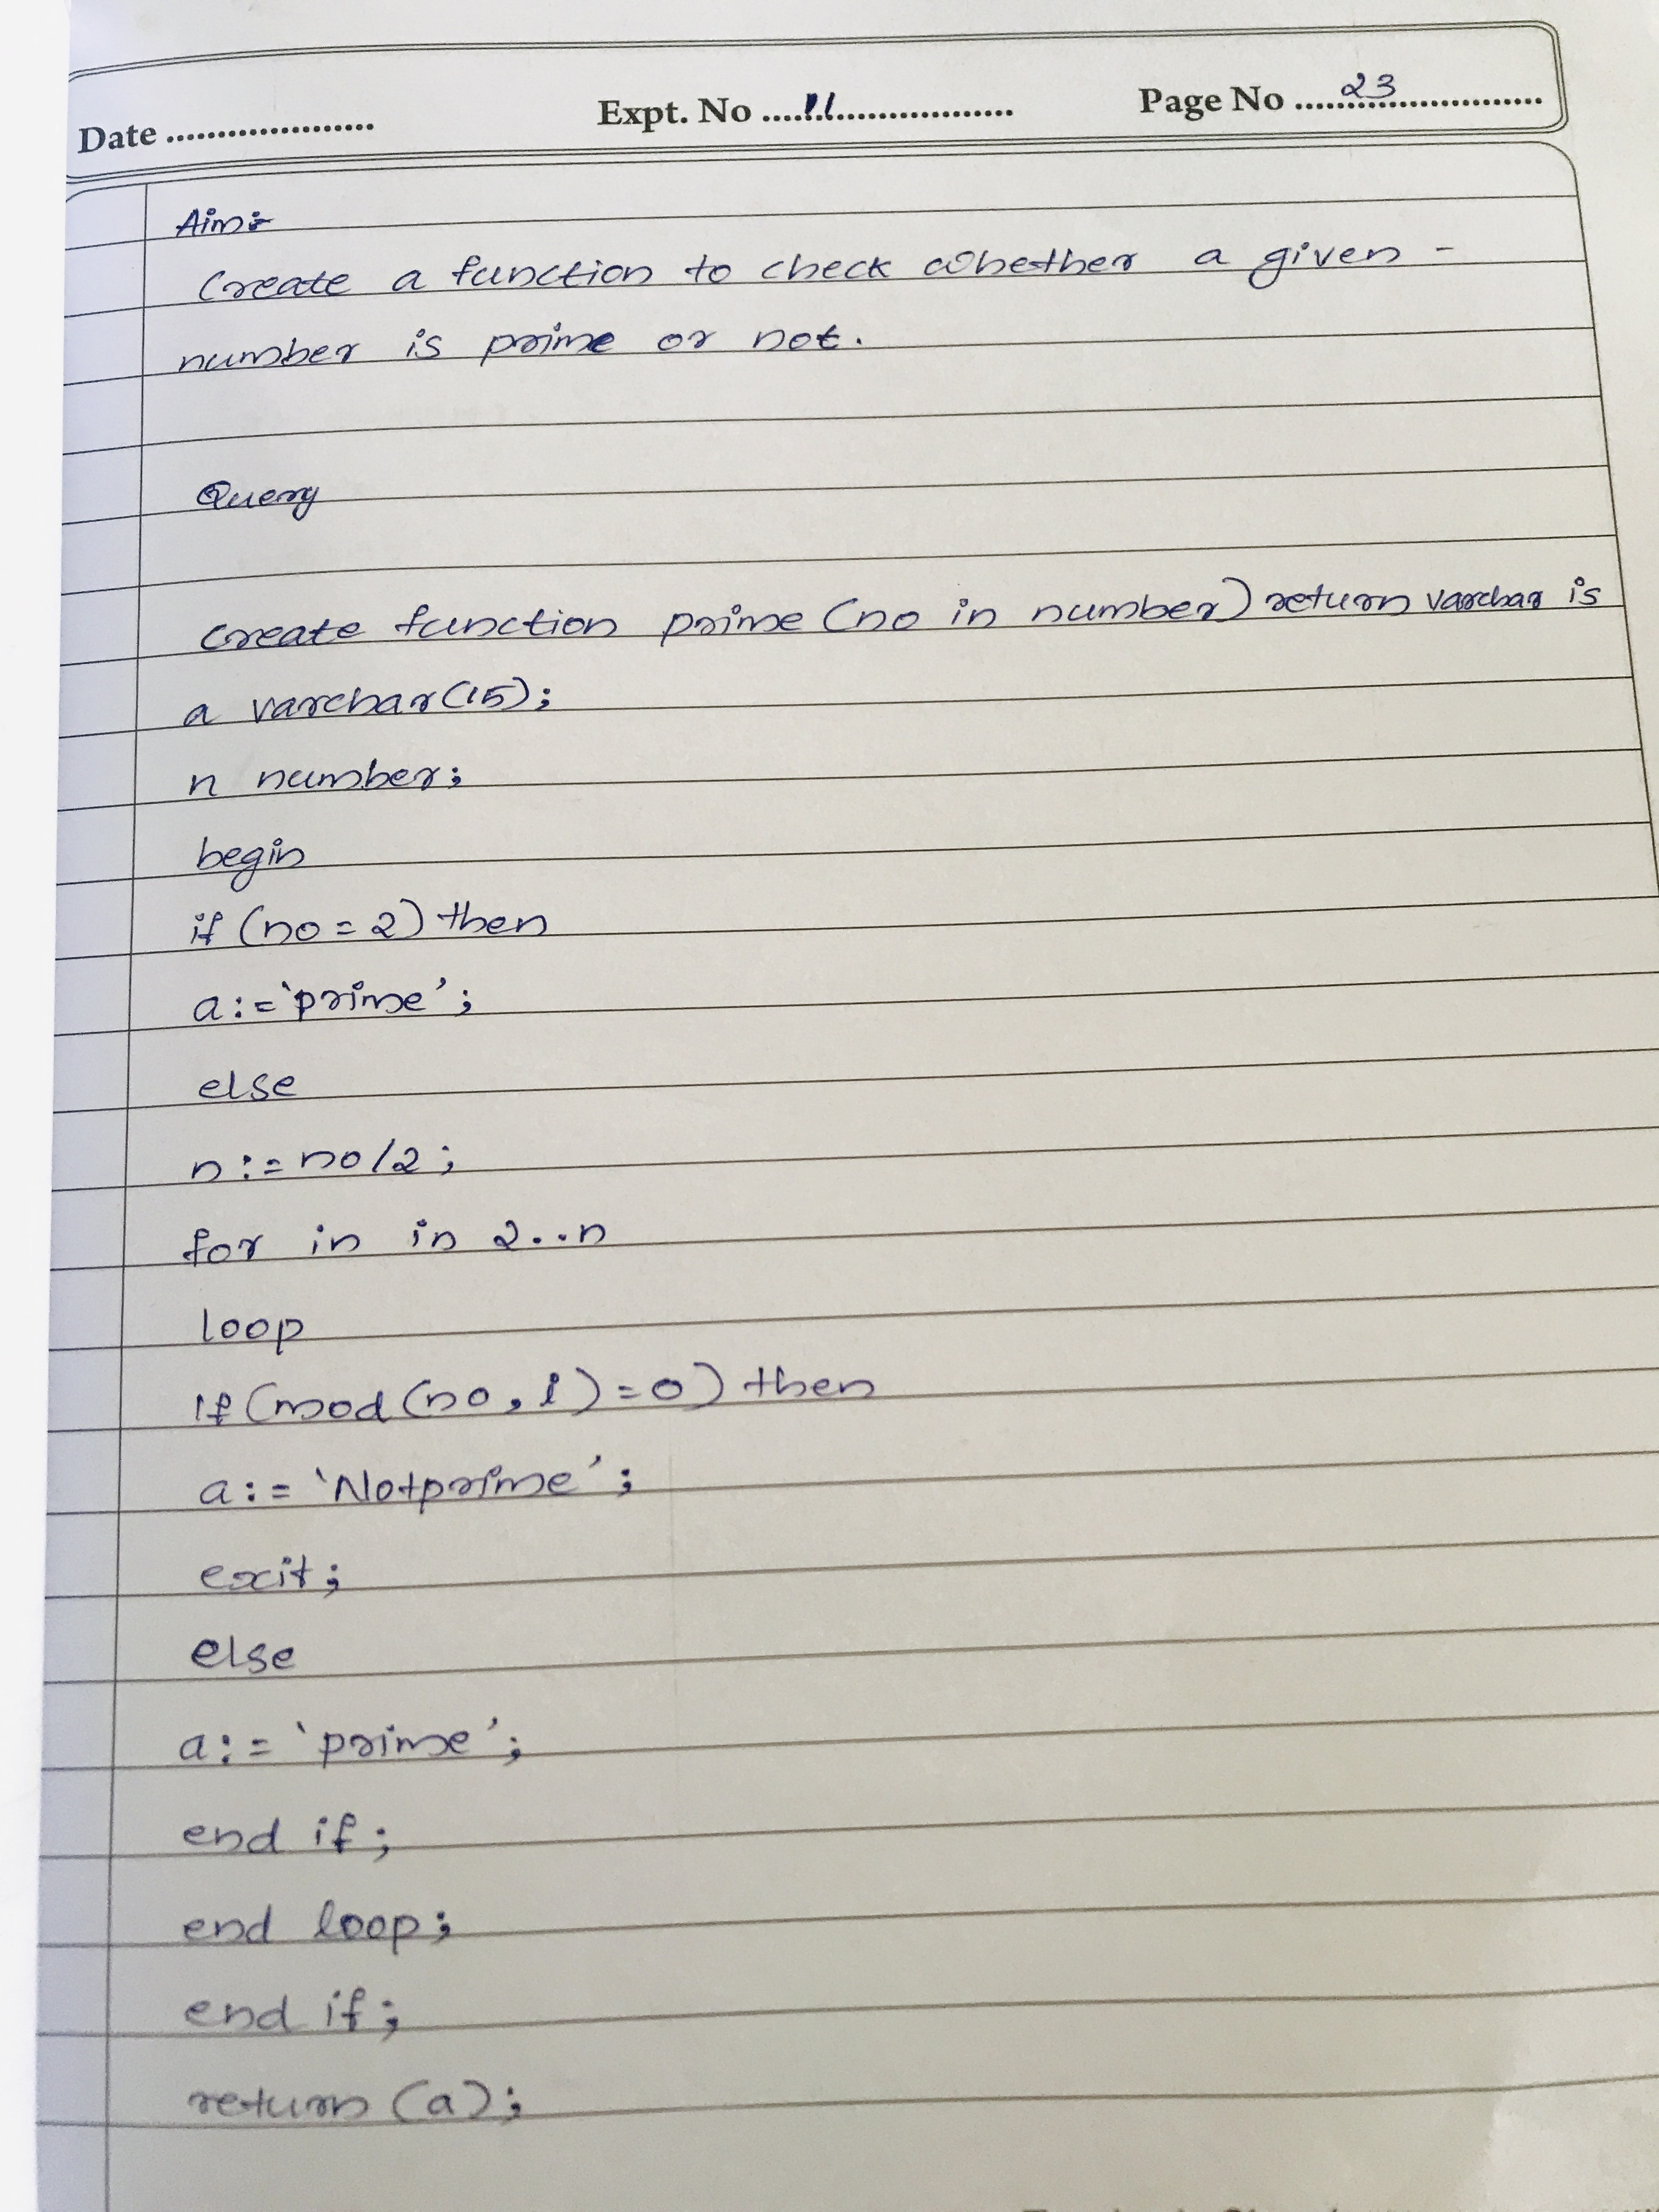 Date .................... Expt. No ....11.................. Page No ....23....................
Aim:-
Create a function to check whether a given -
number is prime or not.
Query
create function prime (no in number) return varchar is
a varchar(15);
n number;
begin
if (no = 2) then
a:=‘prime’;
else
n:= no/2;
for in in 2..n
loop
If (mod (no, i) = 0) then
a:= ‘Notprime’;
exit;
else
a:= ‘prime’;
end if;
end loop;
end if;
return (a);